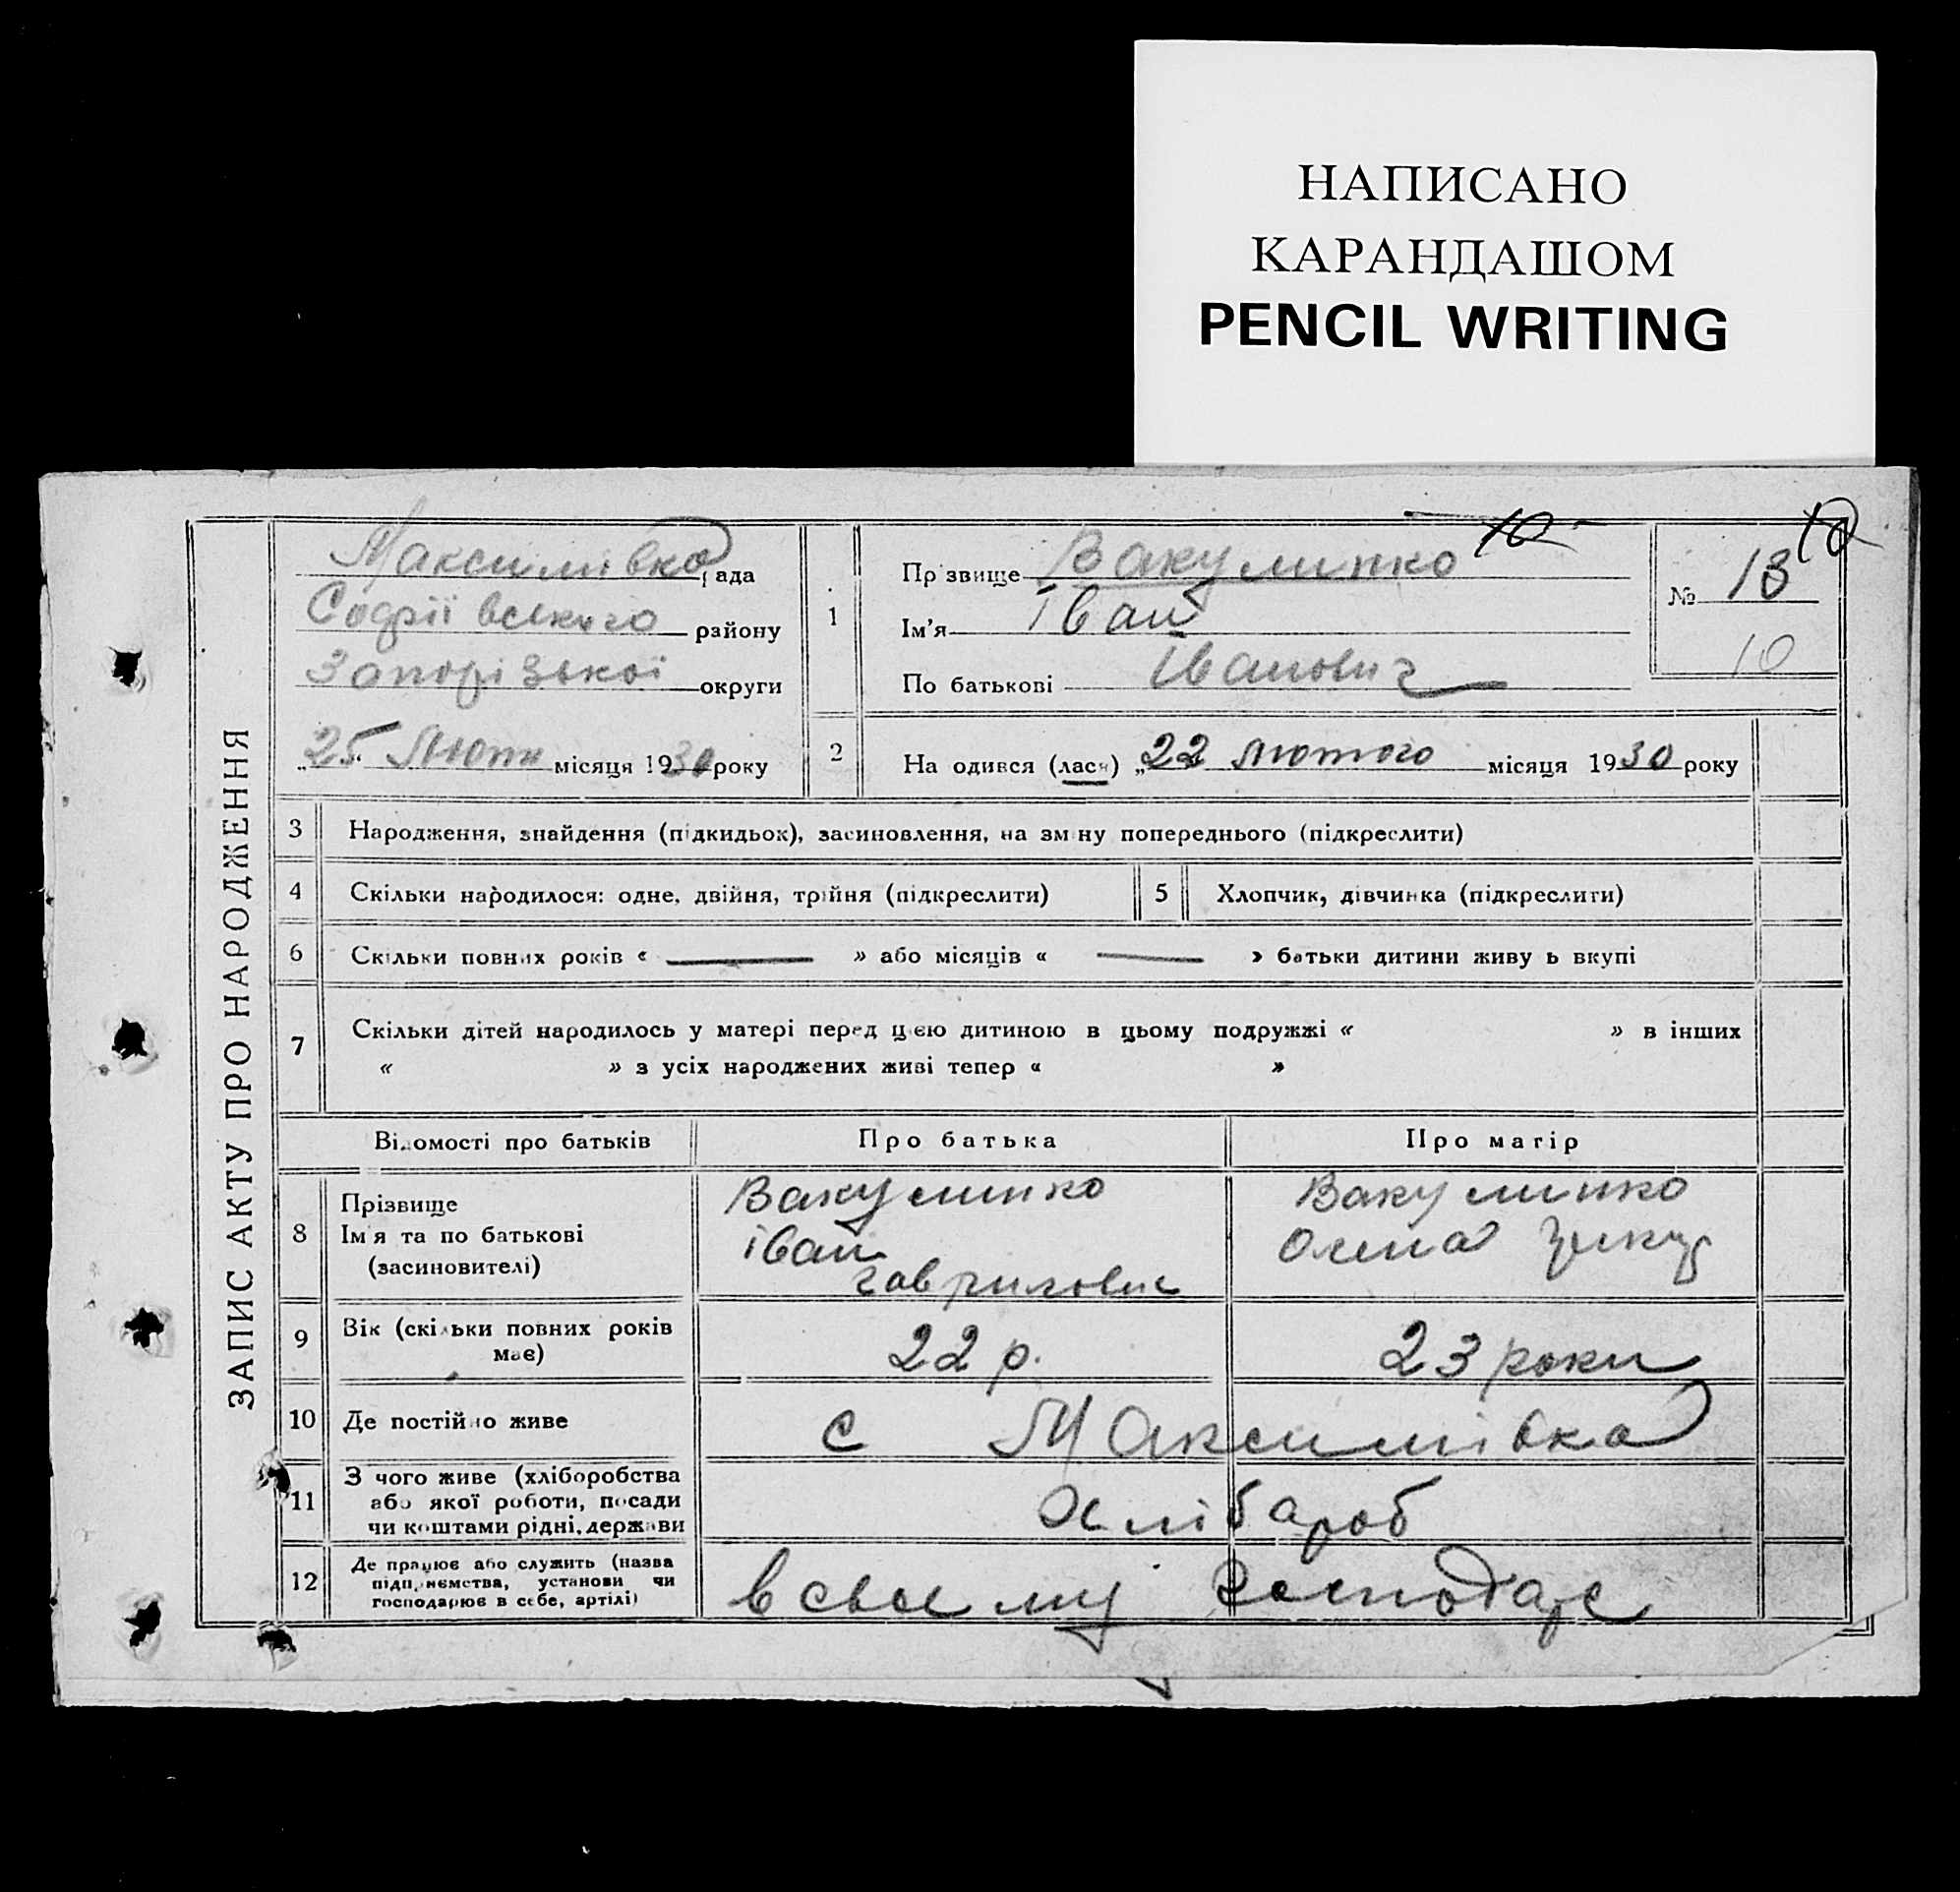 НАПИСАНО
КАРАНДАШОМ
PENCIL WRITING
ЗАПИС АКТУ ПРО НАРОДЖЕННЯ
Максимівка рада
Софіївського району
Запорізької округи
25 Люти місяця 1930 року
1
Прізвище Вакулинко 10
Ім'я Іван
По батькові Іванович
№ 13 10
10
2 На одився (лася) „22 лютого місяця 1930 року
3 Народження, знайдення (підкидьок), засиновлення, на зміну попереднього (підкреслити)
4 Скільки народилося: одне, двійня, трійня (підкреслити) 5 Хлопчик, дівчинка (підкреслити)
6 Скільки повних років « » або місяців « » батьки дитини живу ь вкупі
7 Скільки дітей народилось у матері перед цією дитиною в цьому подружжі « » в інших
« » з усіх народжених живі тепер « »
Відомості про батьків Про батька Про матір
8 Прізвище
Ім'я та по батькові
(засиновителі)
Вакулинко
іван
гаврилович
Вакулинко
Олина
9 Вік (скільки повних років
має)
22 р. 23 роки
10 Де постійно живе с Максимівка
11 З чого живе (хліборобства
або якої роботи, посади
чи коштами рідні, держави
Хлібароб
12 Де працює або служить (назва
підприємства, установи чи
господарює в себе, артілі)
в своему господарс